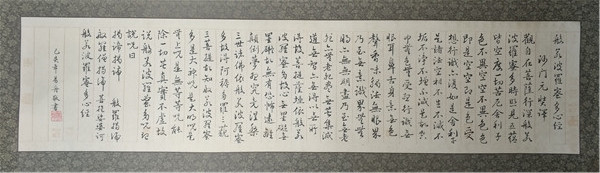 般若波羅蜜多心經
沙門玄奘譯
觀自在菩薩行深般若
波羅蜜多時照見五蘊
皆空度一切苦厄舍利子
色不異空空不異色色
即是空空即是色受
想行識亦復如是舍利子
是諸法空相不生不滅不
垢不淨不增不減是故空
中無色無受想行識無
眼耳鼻舌身意無色
聲香味觸法無眼界
乃至無意識界無無
明亦無無明盡乃至無老
死亦無老死盡無苦集滅
道無智亦無得以無所
得故菩提薩埵依般若
波羅蜜多故心無罣礙無
罣礙故無有恐怖遠離
顛倒夢想究竟涅槃
三世諸佛依般若波羅蜜
多故得阿耨多羅三藐
三菩提故知般若波羅蜜
多是大神咒是大明咒是
無上咒是無等等咒能
除一切苦真實不虛故
說般若波羅蜜多咒即
說咒曰
揭諦揭諦 般羅揭諦
般羅僧揭諦 菩提娑婆訶
般若波羅蜜多心經